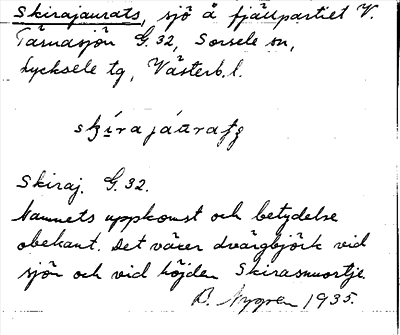 Skirajaurats, sjö å fjällpartiet V.
Tärnasjön G.32, Sorsele sn,
Lycksele tg, Västerb. l.
Skiraj. G.32.
Namnets uppkomst och betydelse
obekant. Det växer dvärgbjörk vid
sjön och vid höjden Skirasnuortje
B. Nygren 1935.